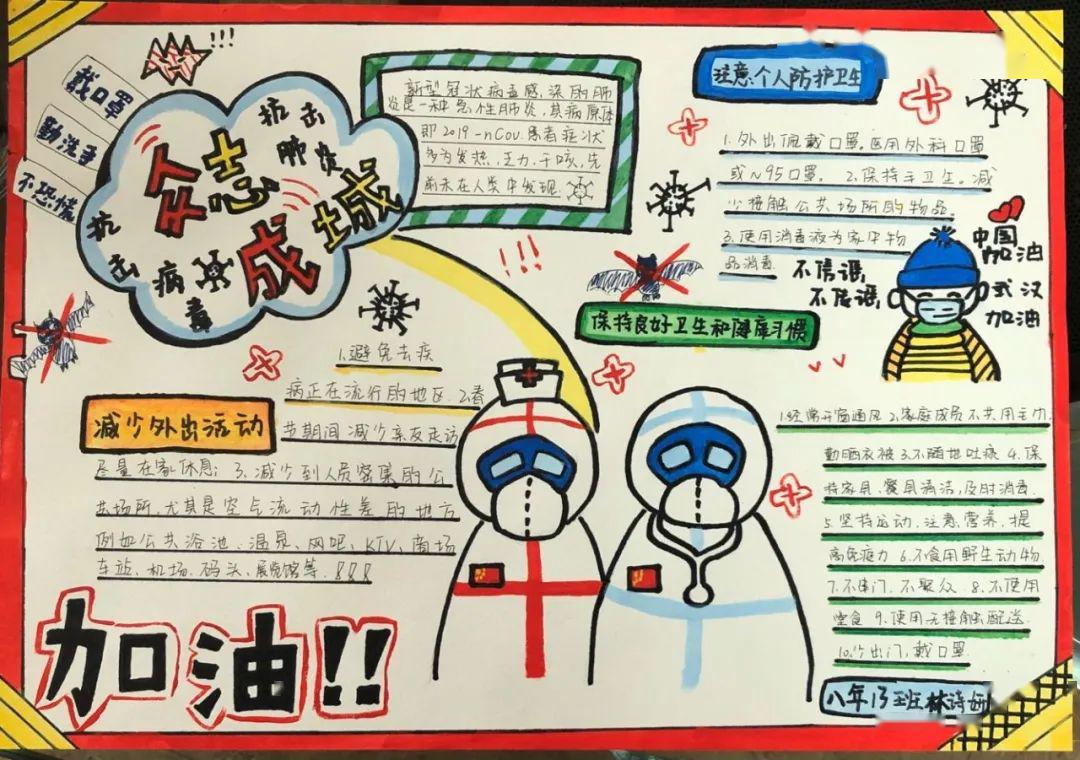 戴口罩
勤洗手
不恐慌
!!!
抗击
肺炎
众志
成城
抗
击
病
毒
新型冠状病毒感染的肺
炎是一种急性肺炎,其病原体
即2019-nCov.患者症状
多为发热,乏力,干咳,先
前未在人类中发现.
注意:个人防护卫生
1.外出佩戴口罩。医用外科口罩
或N95口罩。 2.保持手卫生。减
少接触公共场所的物品.
3.使用消毒液为家中物
品消毒.
不信谣,
不传谣,
中国
加油
武汉
加油
!!!
保持良好卫生和健康习惯
1.经常开窗通风 2.家庭成员不共用毛巾
勤晒衣被 3.不随地吐痰 4.保
持家具、餐具清洁,及时消毒.
5.坚持运动.注意营养.提
高免疫力 6.不食用野生动物
7.不串门.不聚众 8.不使用
堂食 9.使用无接触配送
10.少出门,戴口罩.
减少外出活动
1.避免去疾
病正在流行的地区.2.春
节期间减少亲友走访
尽量在家休息; 3.减少到人员密集的公
共场所.尤其是空气流动性差的地方
例如公共浴池、温泉、网吧、KTV、商场
车站、机场.码头、展览馆等.!!!
加油!!
八年13班 林诗妍